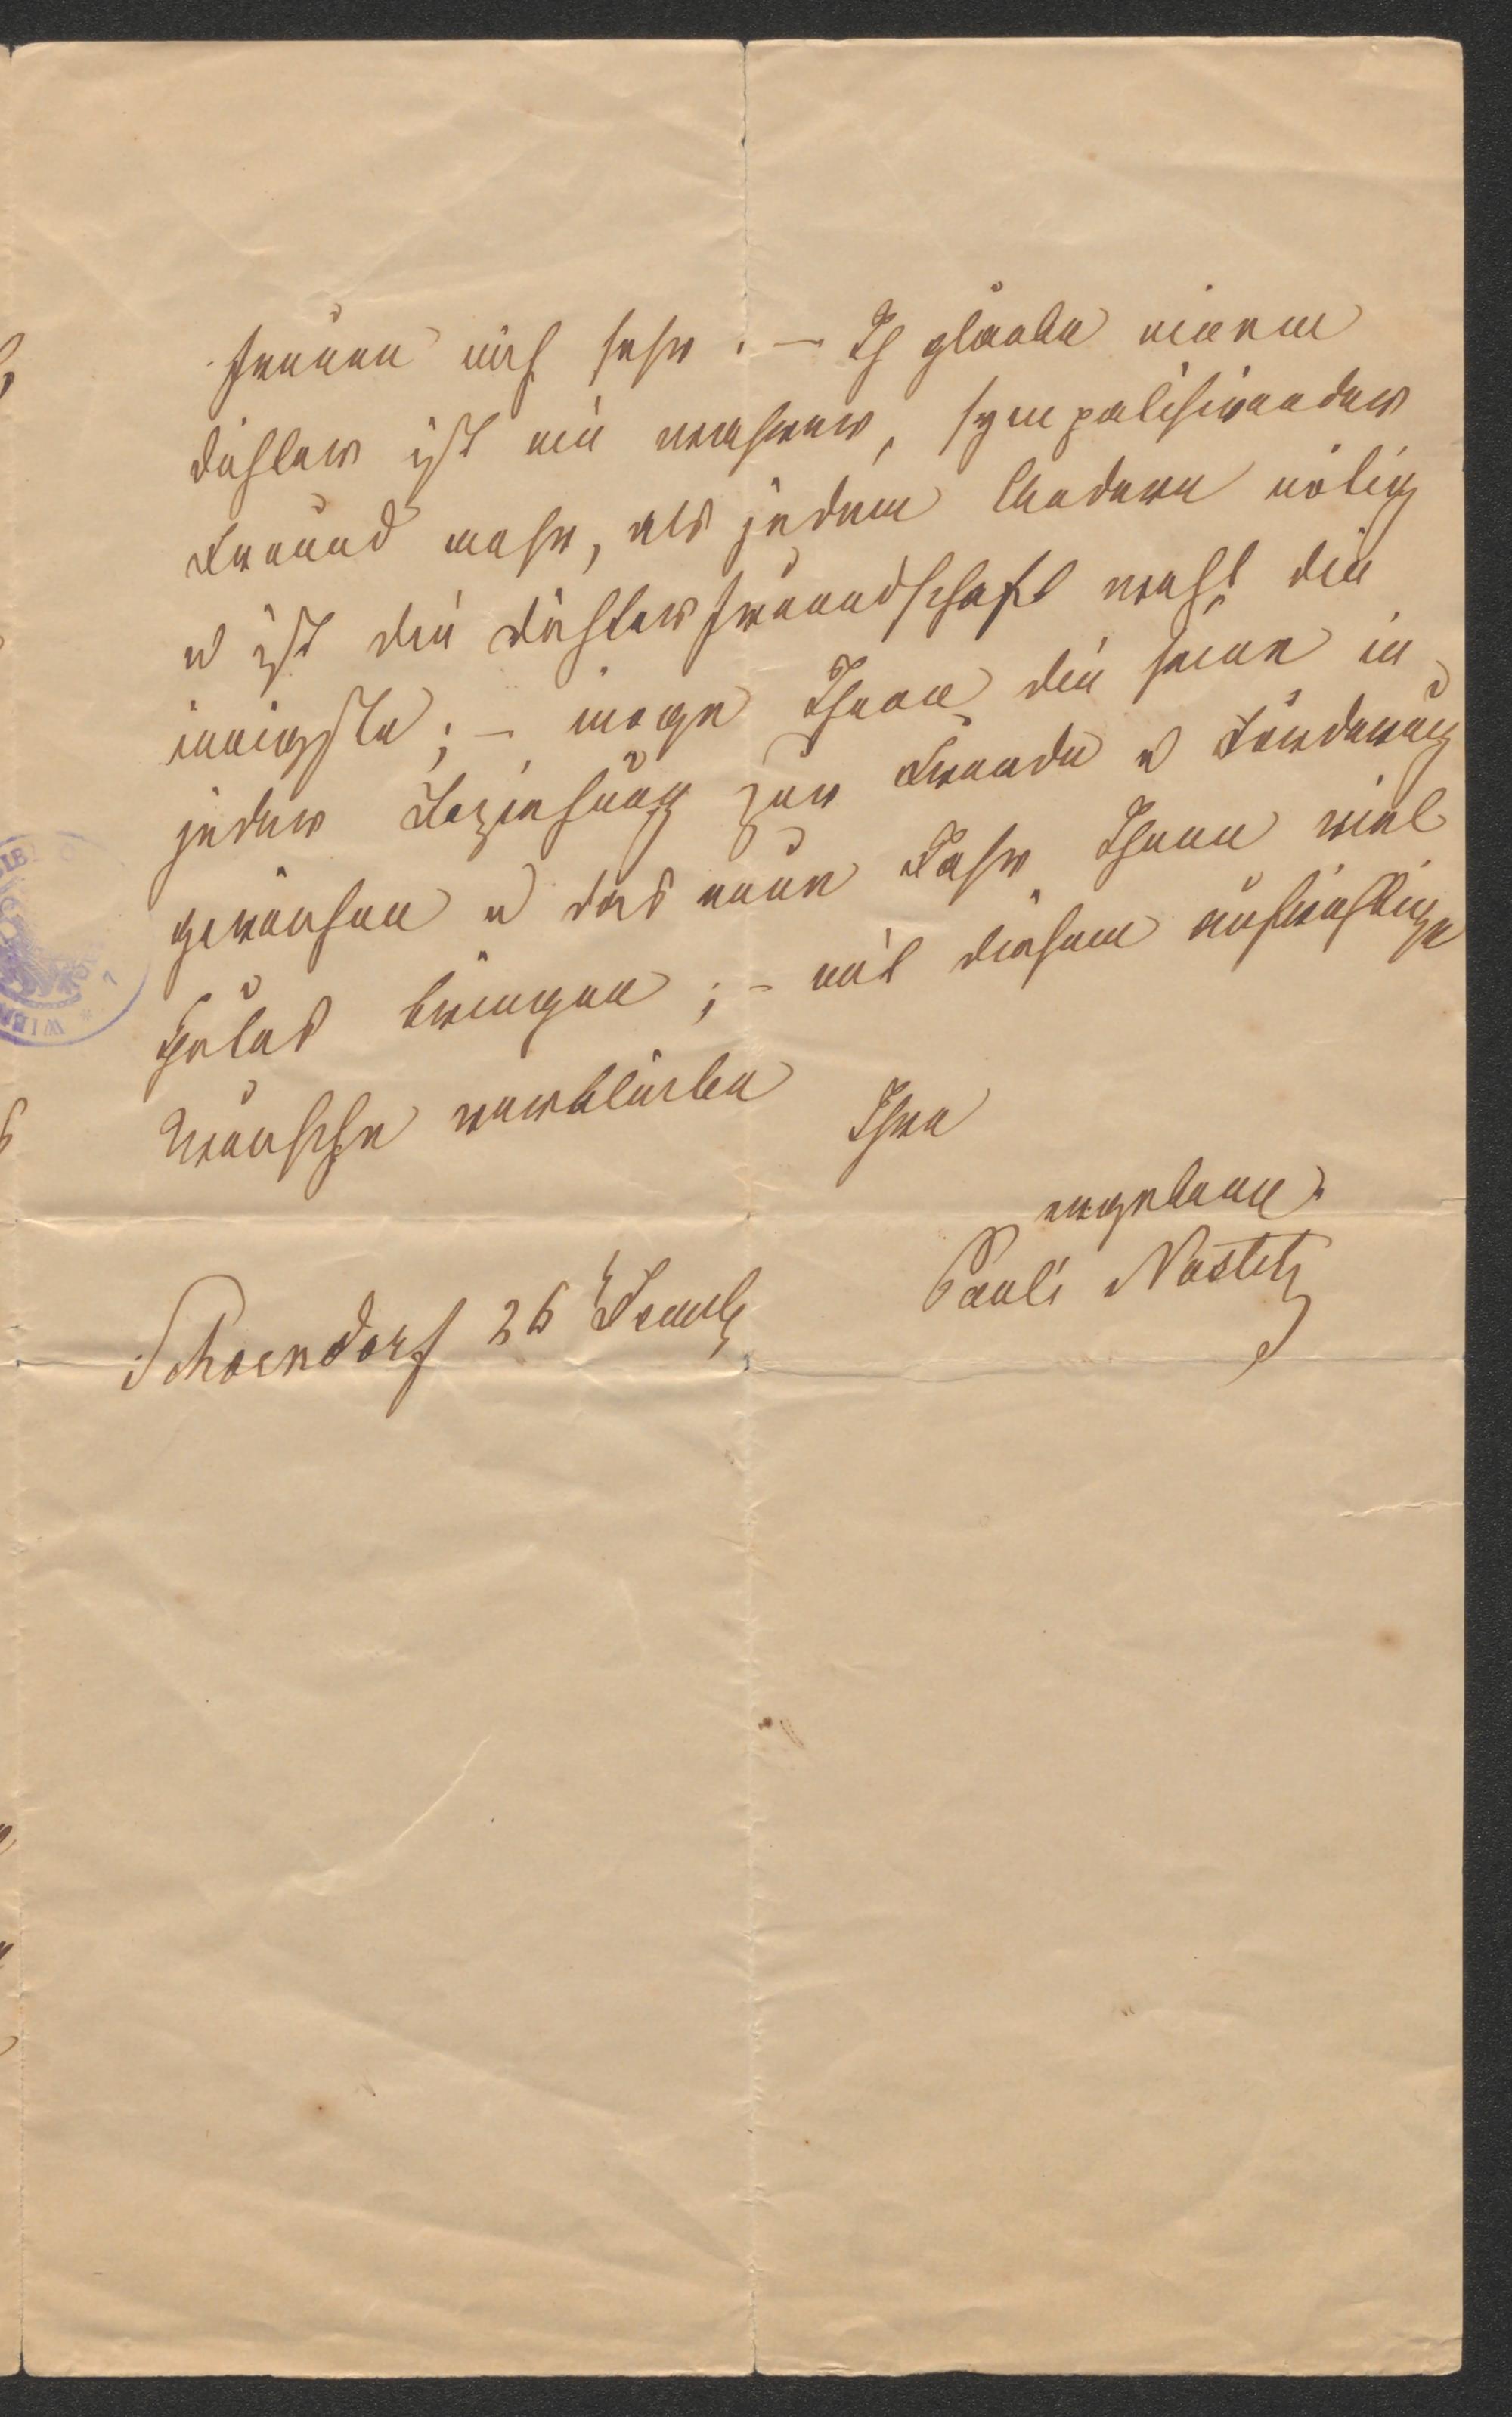 freuen mich sehr. – Ich glaube einem
Dichter ist ein wahrer, sympatisirender
Freund mehr, als jedem Andern nötig
u ist die Dichterfreundschaft wohl die
innigste; – möge Ihnen die seine in
jeder Beziehung zur Freude u Förderung
gereichen u das neue Jahr Ihnen viel
Gutes bringen; – mit diesem aufrichtigen
Wunsche verbleibe
Ihre
ergebene
Pauli Nostitz
Schoendorf 26